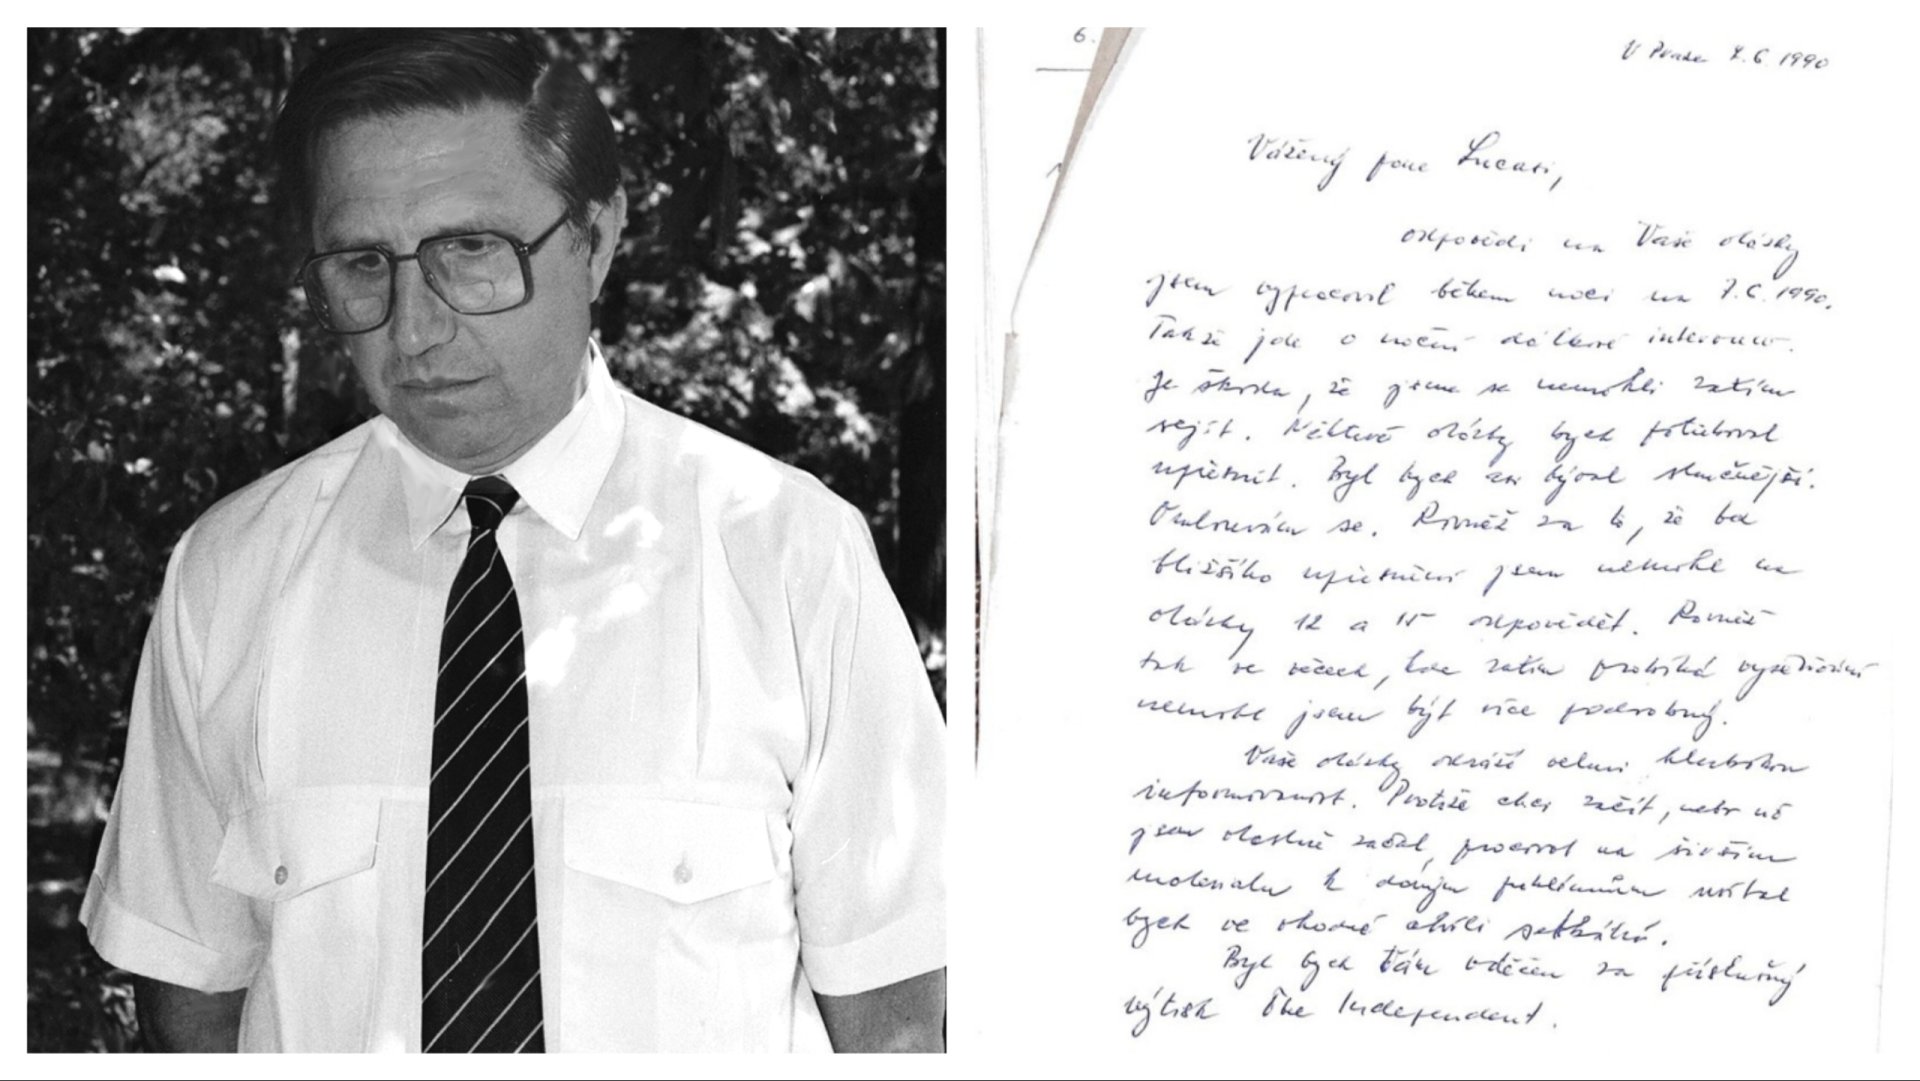 6.
V Praze 7.6.1990
Vážený pane Lucasi,
odpovědi na Vaše otázky
jsem vypracoval během noci na 7.6.1990.
Takže jde o noční dálkové interview.
Je škoda, že jsme se nemohli zatím
sejít. Některé otázky bych potřeboval
upřesnit. Byl bych asi býval stručnější.
Omlouvám se. Rovněž za to, že bez
bližšího upřesnění jsem nemohl na
otázky 12 a 15 odpovědět. Rovněž
tak ve věcech, kde zatím probíhá vyšetřování
nemohl jsem být více podrobný.
Vaše otázky odráží velmi hlubokou
informovanost. Protože chci začít, nebo už
jsem vlastně začal, pracovat na širším
materiálu k daným problémům uvítal
bych ve vhodné chvíli setkání.
Byl bych Vám vděčen za příslušný
výtisk The Independent.